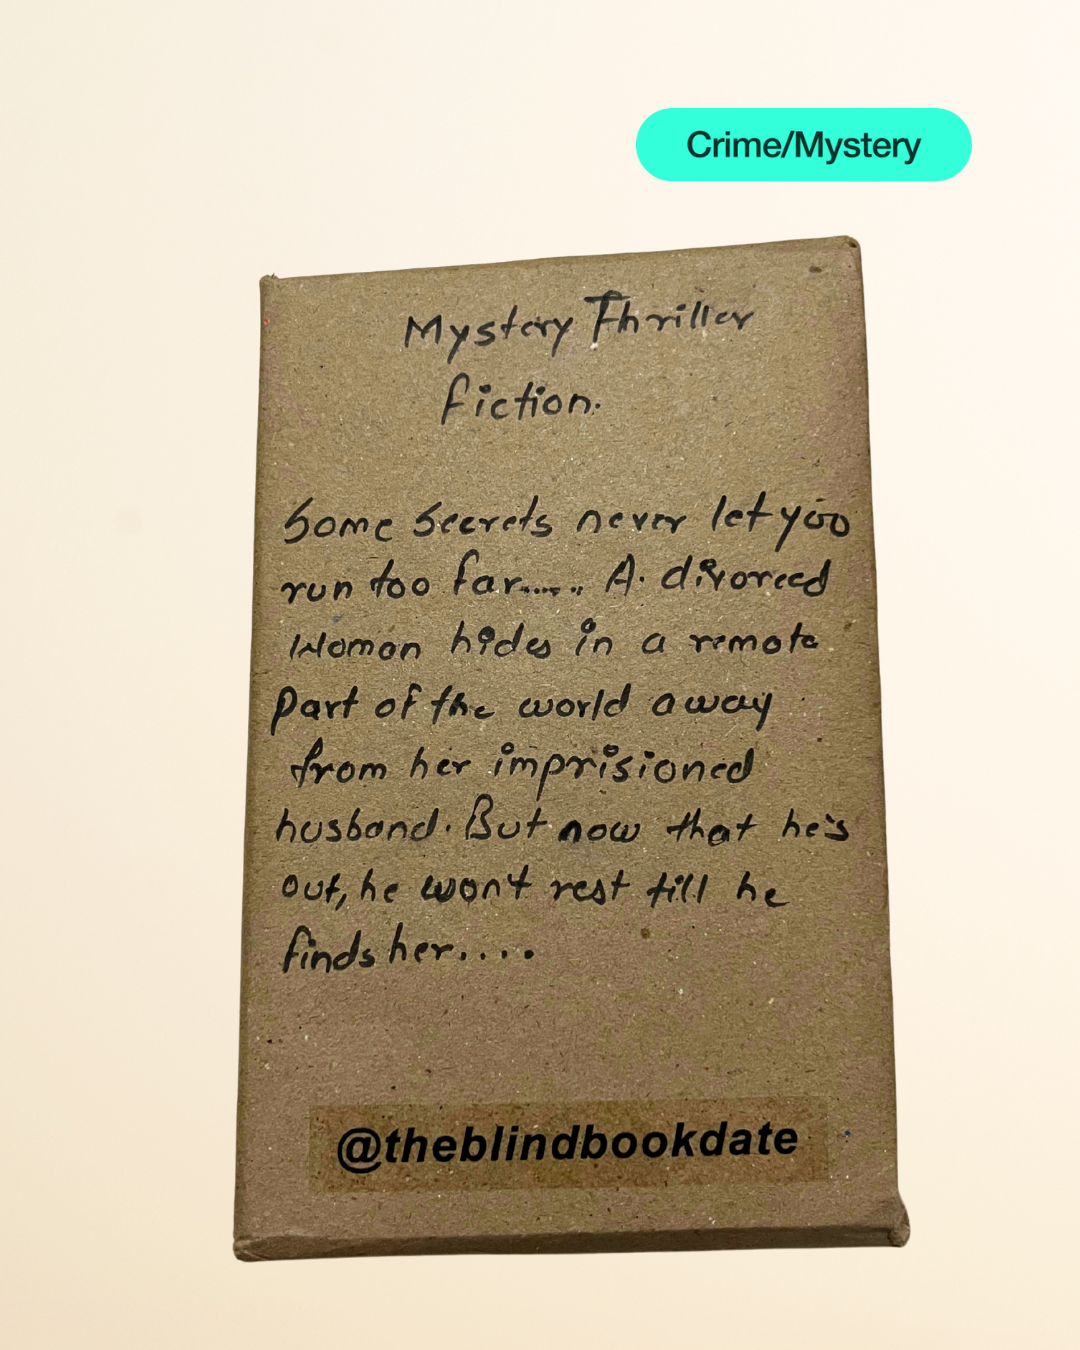 Crime/Mystery
Mystery Thriller
fiction.
Some secrets never let you
run too far..... A. divorced
Woman hides in a remote
part of the world away
from her imprisioned
husband. But now that he's
out, he won't rest till he
finds her....
@theblindbookdate